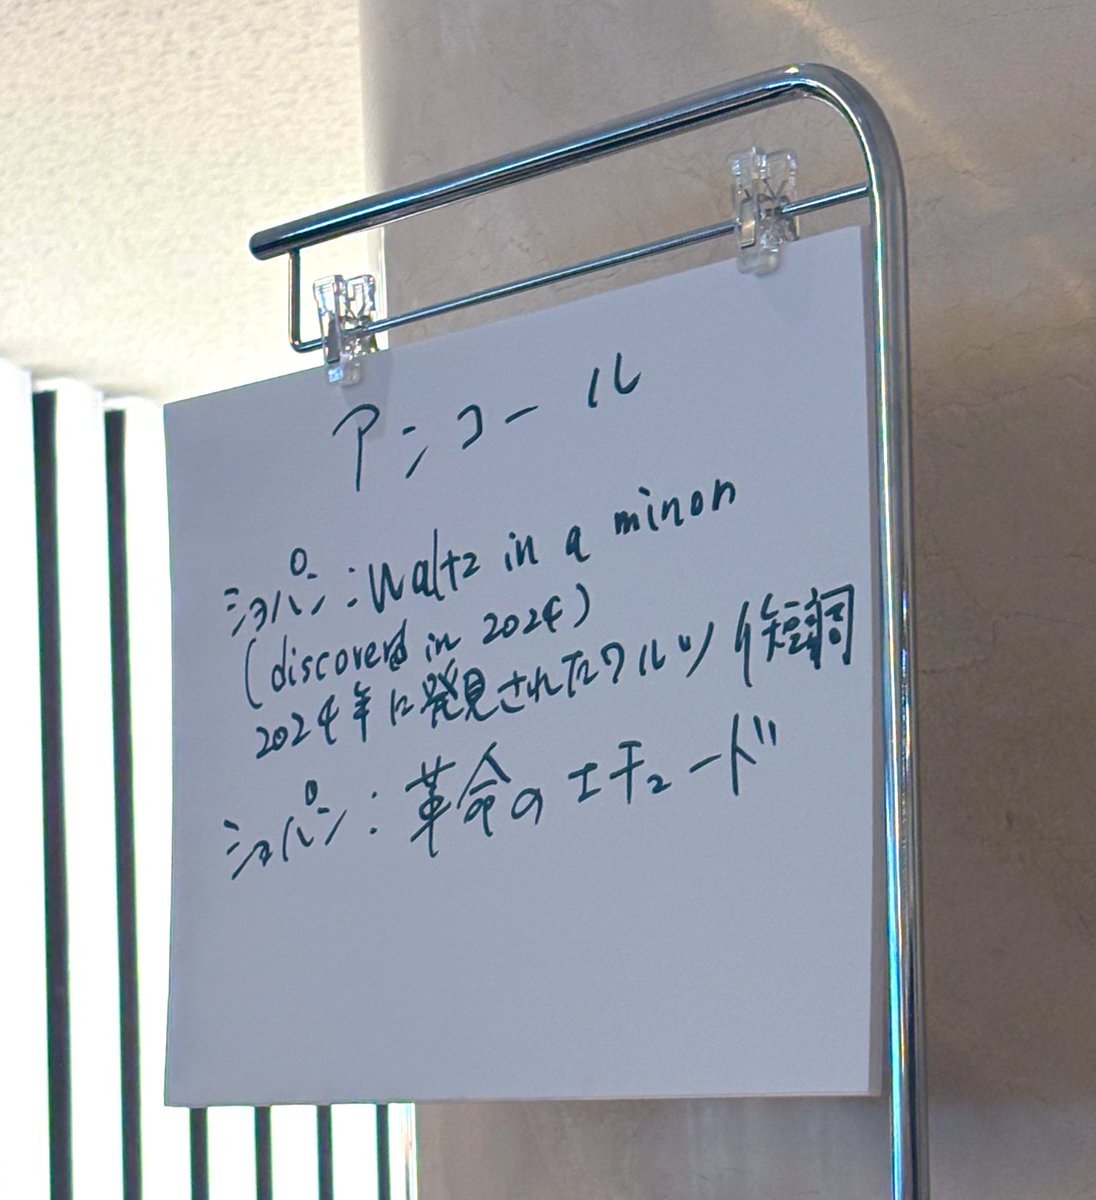 アンコール
ショパン:Waltz in a minor
(discovered in 2024)
2024年に発見されたワルツ イ短調
ショパン:革命のエチュード